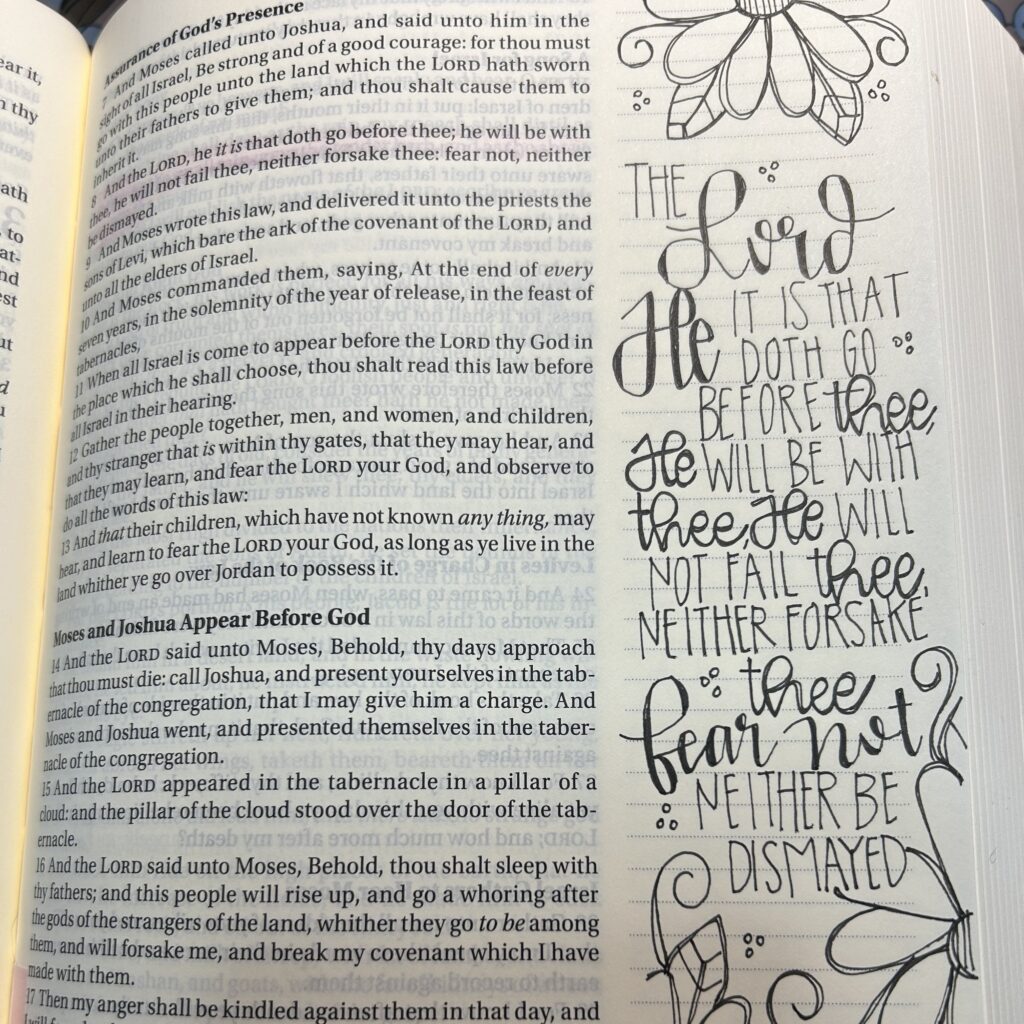 ear it,
n thy
ath
, to
at-
nd
est
ut
d
u
Assurance of God's Presence
7 And Moses called unto Joshua, and said unto him in the
sight of all Israel, Be strong and of a good courage: for thou must
go with this people unto the land which the LORD hath sworn
unto their fathers to give them; and thou shalt cause them to
inherit it.
8 And the LORD, he it is that doth go before thee; he will be with
thee, he will not fail thee, neither forsake thee: fear not, neither
be dismayed.
9 And Moses wrote this law, and delivered it unto the priests the
sons of Levi, which bare the ark of the covenant of the LORD, and
unto all the elders of Israel.
10 And Moses commanded them, saying, At the end of every
seven years, in the solemnity of the year of release, in the feast of
tabernacles,
11 When all Israel is come to appear before the LORD thy God in
the place which he shall choose, thou shalt read this law before
all Israel in their hearing.
12 Gather the people together, men, and women, and children,
and thy stranger that is within thy gates, that they may hear, and
that they may learn, and fear the LORD your God, and observe to
do all the words of this law:
13 And that their children, which have not known any thing, may
hear, and learn to fear the LORD your God, as long as ye live in the
land whither ye go over Jordan to possess it.
Moses and Joshua Appear Before God
14 And the LORD said unto Moses, Behold, thy days approach
that thou must die: call Joshua, and present yourselves in the tab-
ernacle of the congregation, that I may give him a charge. And
Moses and Joshua went, and presented themselves in the taber-
nacle of the congregation.
15 And the LORD appeared in the tabernacle in a pillar of a
cloud: and the pillar of the cloud stood over the door of the tab-
ernacle.
16 And the LORD said unto Moses, Behold, thou shalt sleep with
thy fathers; and this people will rise up, and go a whoring after
the gods of the strangers of the land, whither they go to be among
them, and will forsake me, and break my covenant which I have
made with them.
17 Then my anger shall be kindled against them in that day, and
THE Lord
He IT IS THAT
DOTH GO
BEFORE thee,
He WILL BE WITH
thee, He WILL
NOT FAIL thee,
NEITHER FORSAKE
thee
fear not
NEITHER BE
DISMAYED